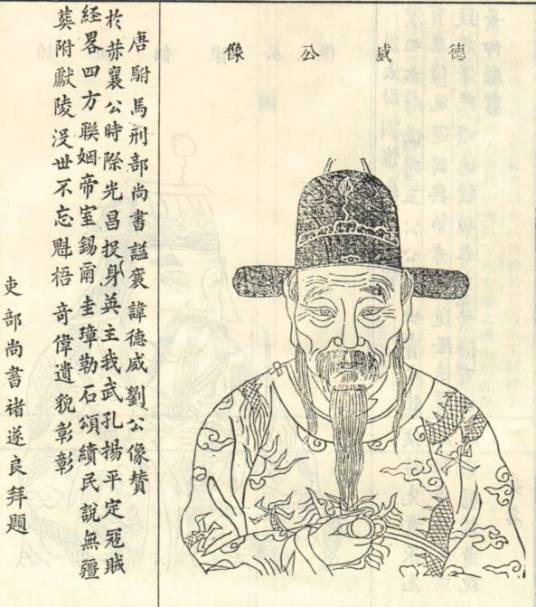 德威公像
唐駙馬刑部尚書謚襄諱德威劉公像贊
於赫襄公時除光昌捉身英主我武孔揚平定冦賊
經畧四方聯姻帝室錫爾圭璋勒石頌績民說無疆
葬附獻陵沒世不忘魁梧奇偉遺貌彰彰
吏部尚書褚遂良拜題